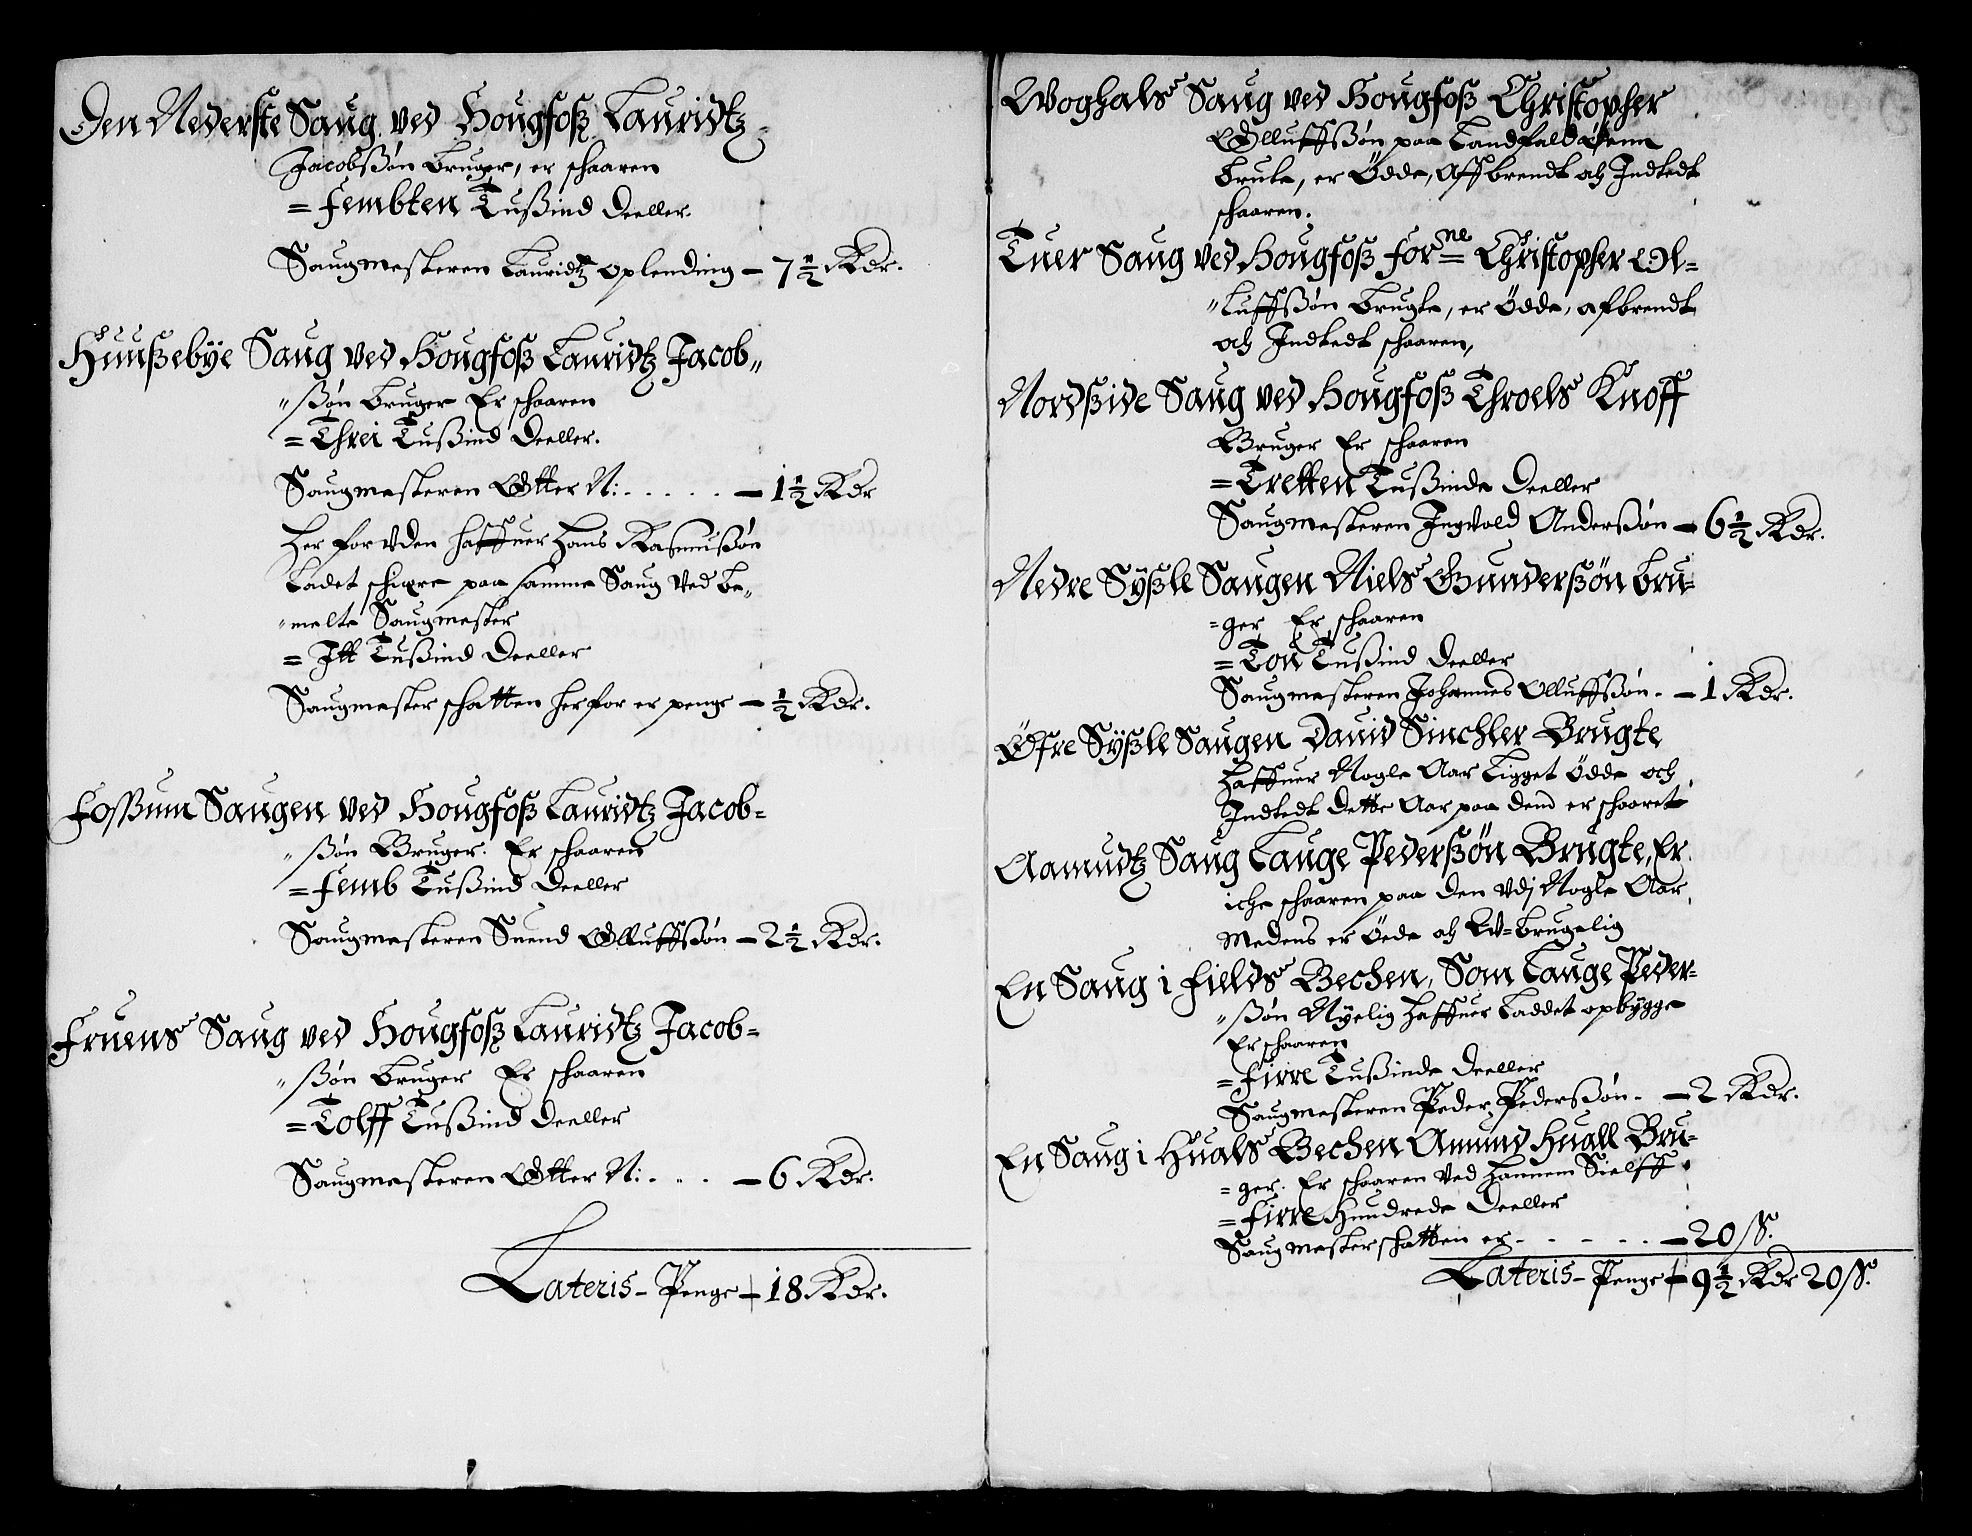 Den Nederste Saug ved Hougfosz Lauridtz
Jacobszøn Bruger, er schaaren
= Fembten Tuszind Deeller.
Saugmesteren Lauridtz Oplending – 7½ Rdr.
Huuszebÿe Saug ved Hougfosz Lauridtz Jacob„
„szøn Bruger Er schaaren
= Threi Tuszind Deeller.
Saugmesteren Otter N: . . . . . – 1½ Rdr
Her for vden haffuer Hans Rasmuszøn
Ladet schiære paa samme Saug ved be„
„melte Saugmester
= Itt Tuszind Deeller
Saugmester schatten herfor er penge – ½ Rdr.
Foszum Saugen ved Hougfosz Lauridtz Jacob-
„szøn Bruger. Er schaaren
= Femb Tuszind Deeller
Saugmesteren Suend Olluffszøn – 2½ Rdr.
Fruens Saug ved Hougfosz Lauridtz Jacob-
„szøn Bruger Er schaaren
= Tolff Tuszind Deeller
Saugmesteren Otter N: . . . – 6 Rdr.
Lateris – Penge – 18 Rdr.
Woghals Saug ved Hougfosz Christopher
Olluffszøn paa Landfald
Brute, er Ödde, Aff brendt och Indtedt
schaaren.
Tuer Saug ved Hougfosz forne Christopher Ol=
„luffszøn Brugte, er Ödde, afbrendt
och Indtedt schaaren,
Nordszide Saug ved Hougfosz Throels Knoff
Bruger Er schaaren
= Tretten Tuszinde Deeller
Saugmesteren Ingvold Anderszøn – 6½ Rdr.
Nedre Sÿszle Saugen Niels Gunderszøn Bru=
=ger Er schaaren
= Tou Tuszind Deeller
Saugmesteren Johannes Olluffszøn. – 1 Rdr.
Öfre Sÿszle Saugen Dauid Sinchler Brugte
Haffuer Nogle Aar Ligget Ödde och
Indtedt dette Aar paa dend er schaaret
Aamudtz Saug Lauge Pederszön Brugte, Er
iche schaaren paa den vdj Nogle Aar,
Medens er Öede och Wbrugelig
En Saug i Fields Bechen, Som Lauge Peder-
„szøn Nÿelig Haffuer Laddet opbÿgge
Er schaaren
= Firre Tuszinde Deeller
Saugmesteren Peder Pederszøn. – 2 Rdr.
En Saug i Huals Bechen Amund Huall Bru-
=ger. Er schaaren ved Hannem Sielff
= Firre Hundrede Deeller
Saugmesterschatten er . . . . . – 20 sz.
Lateris – Penge – 9½ Rdr 20 sz.